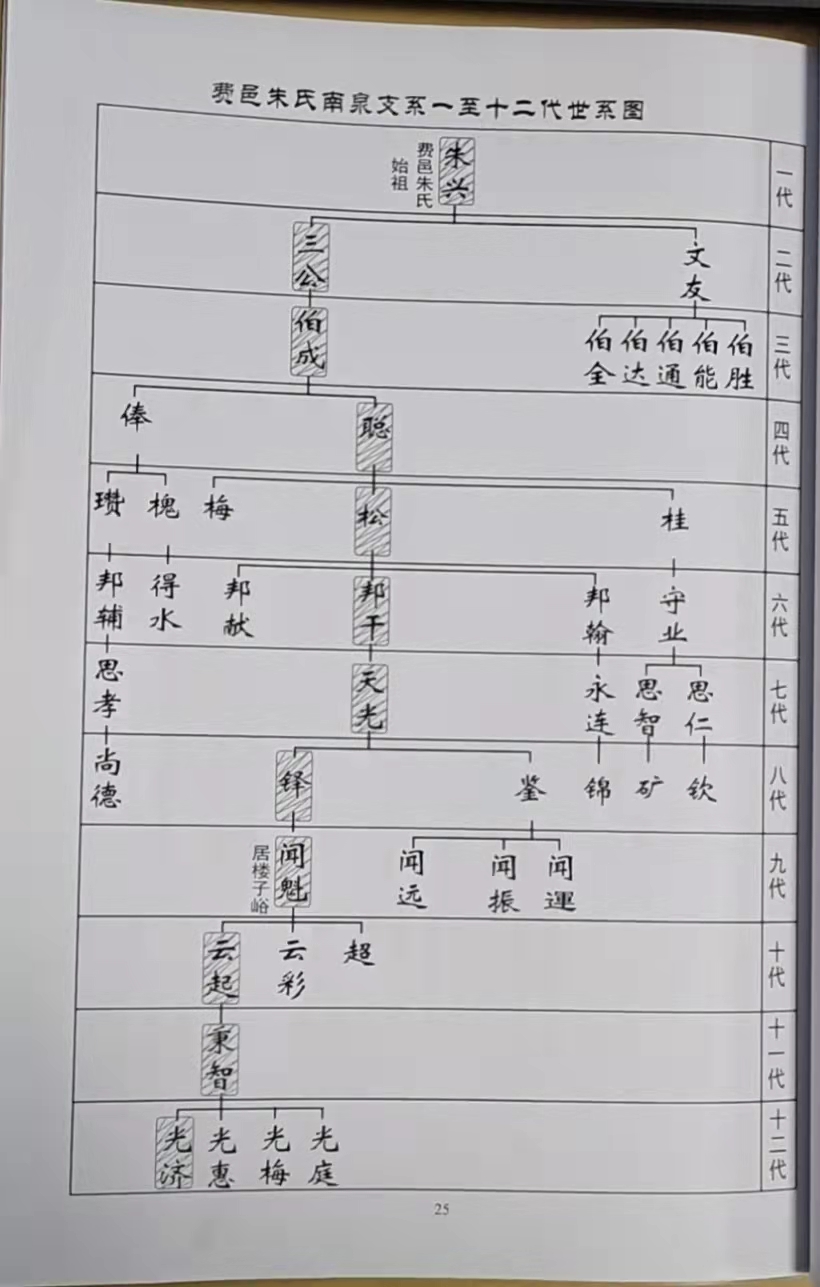 费邑朱氏南泉支系一至十二代世系图
一代
朱兴
费邑朱氏
始祖
二代
三公
文友
三代
伯成
伯全
伯达
伯通
伯能
伯胜
四代
俸
聪
五代
瓒
槐
梅
松
桂
六代
邦辅
得水
邦献
邦干
邦翰
守业
七代
思孝
天光
永连
思智
思仁
八代
尚德
铎
鉴
锦
矿
钦
九代
居楼子峪
闻魁
闻远
闻振
闻運
十代
云起
云彩
超
十一代
秉智
十二代
光济
光惠
光梅
光庭
25